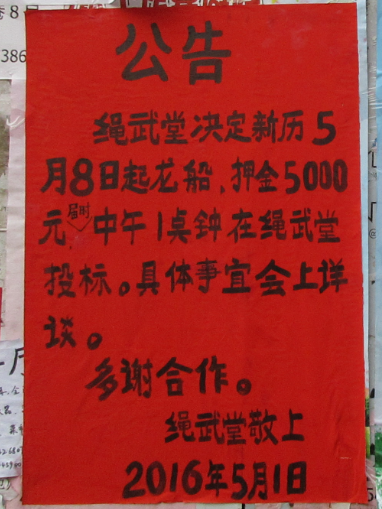 巷8号
386
公告
绳武堂决定新历5
月8日起龙船、押金5000
元,届时中午1桌钟在绳武堂
投标。具体事宜会上详
谈。
多谢合作。
绳武堂敬上
2016年5月1日